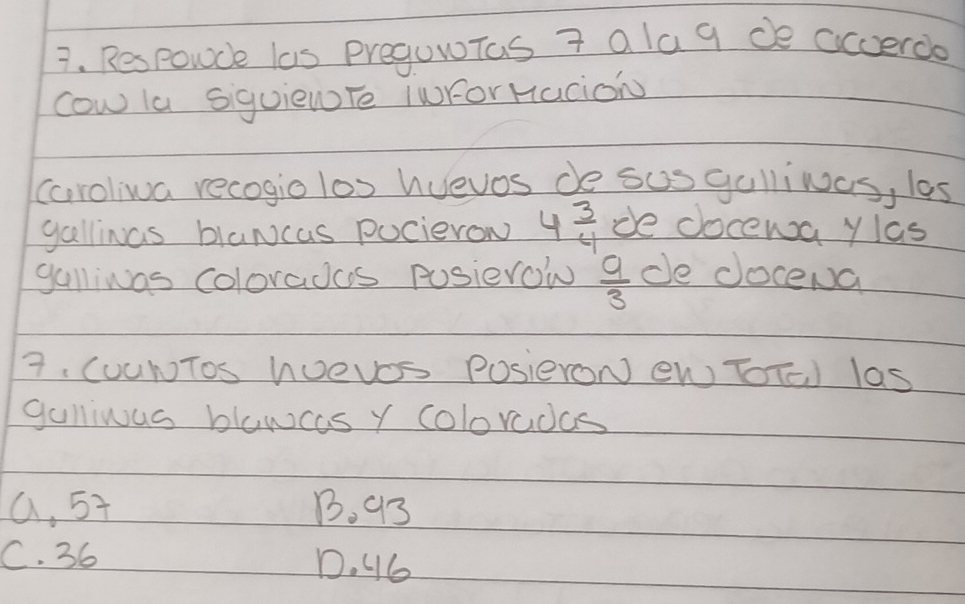 7. Responde las preguntas 7 a la 9 de acuerdo
con la siguiente información
Carolina recogio los huevos de sus gallinas, las
gallinas blancas pucieron 4 3/4 de docena y las
gallinas coloradas posierón 9/3 de docena
7. Cuantos huevos posieron en total las
gallinas blancas y coloradas
a. 57 B. 93
C. 36 D. 46